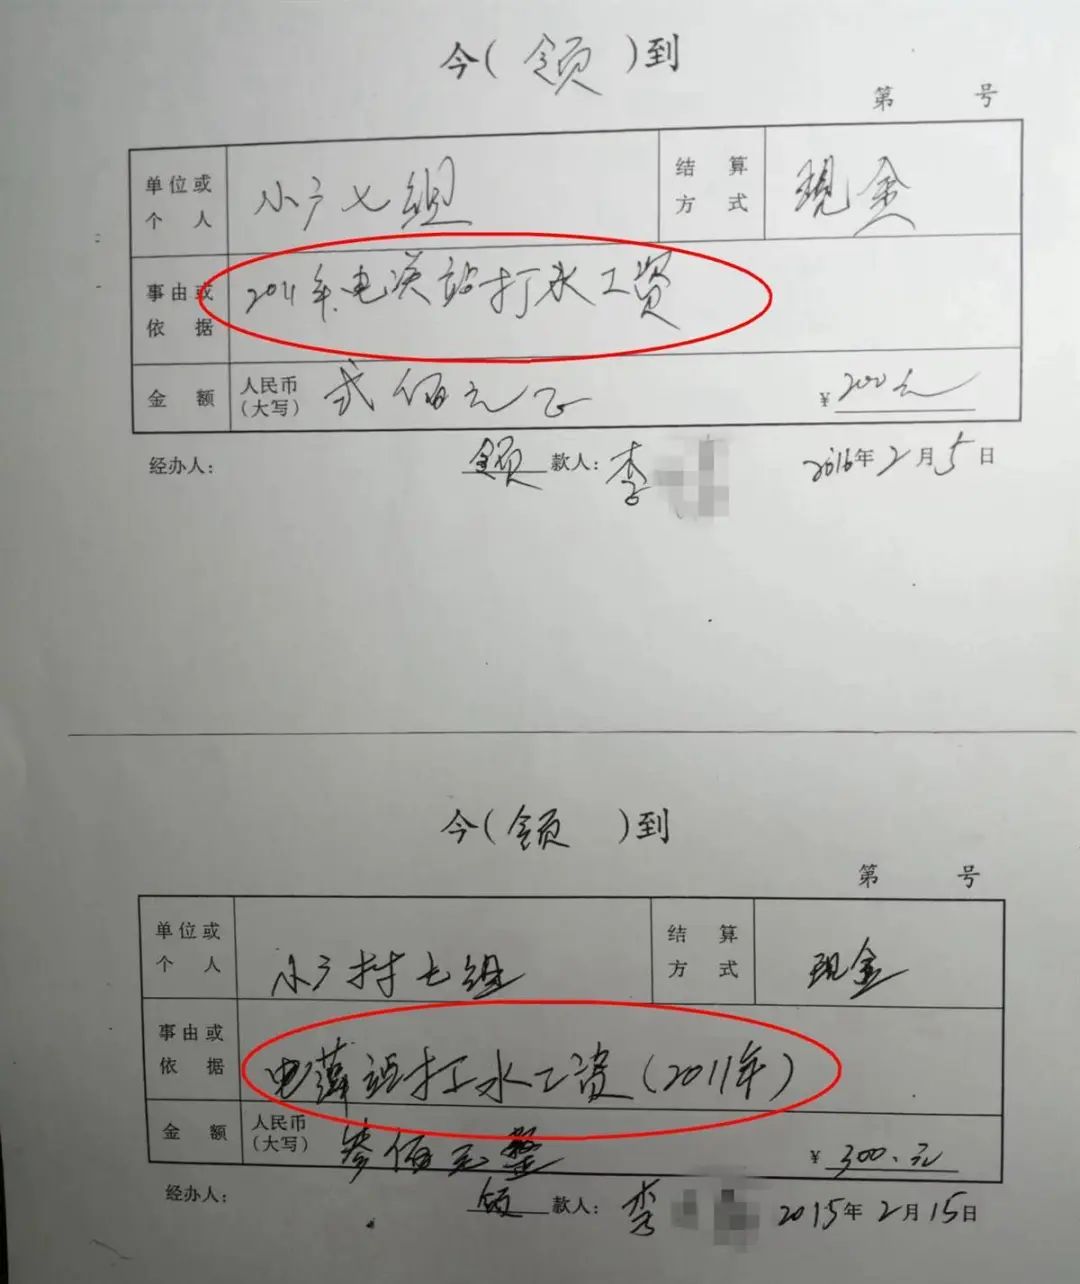 今(领)到
第 号
单位或个人 小户七组 结算方式 现金
事由或依据 2011年电灌站打水工资
金额 人民币(大写) 弍佰元正 ¥200元
经办人: 领款人: 李 2016年2月5日
今(领)到
第 号
单位或个人 小户村七组 结算方式 现金
事由或依据 电灌站打水工资(2011年)
金额 人民币(大写) 叁佰元整 ¥300.元
经办人: 领款人: 李 2015年2月15日